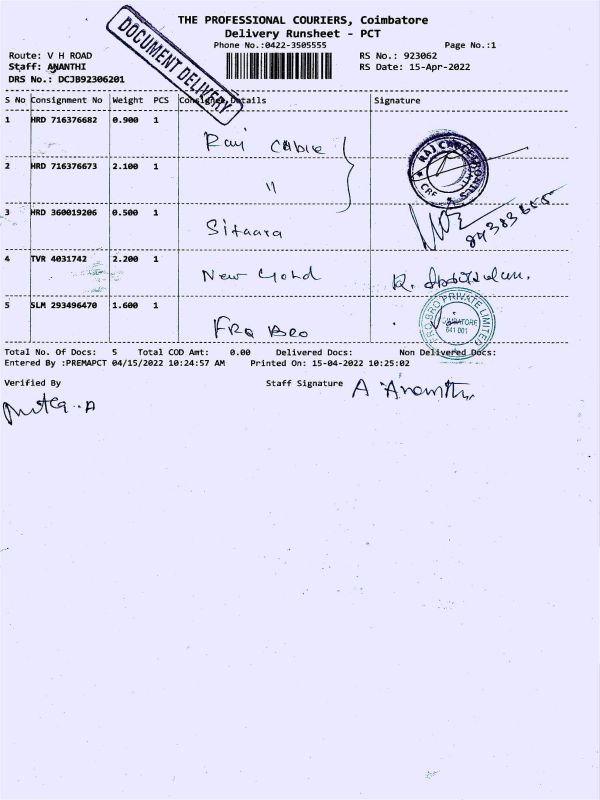 THE PROFESSIONAL COURIERS, Coimbatore
Delivery Runsheet - PCT
Phone No.:0422-3505555 Page No.:1
DOCUMENT DELIVERY
Route: V H ROAD RS No.: 923062
Staff: ANANTHI RS Date: 15-Apr-2022
DRS No.: DCJB92306201
S No Consignment No Weight PCS Consignee Details Signature
1 HRD 716376682 0.900 1 Raj Cable
RAJ
2 HRD 716376673 2.100 1 "
CBE
3 HRD 360019206 0.500 1 Sitaara
4 TVR 4031742 2.200 1 New Gold
5 SLM 293496470 1.600 1 FRO BRO
FRO BRO PRIVATE LIMITED
COIMBATORE
641 001
Total No. Of Docs: 5 Total COD Amt: 0.00 Delivered Docs: Non Delivered Docs:
Entered By :PREMAPCT 04/15/2022 10:24:57 AM Printed On: 15-04-2022 10:25:02
Verified By Staff Signature A Ananthi